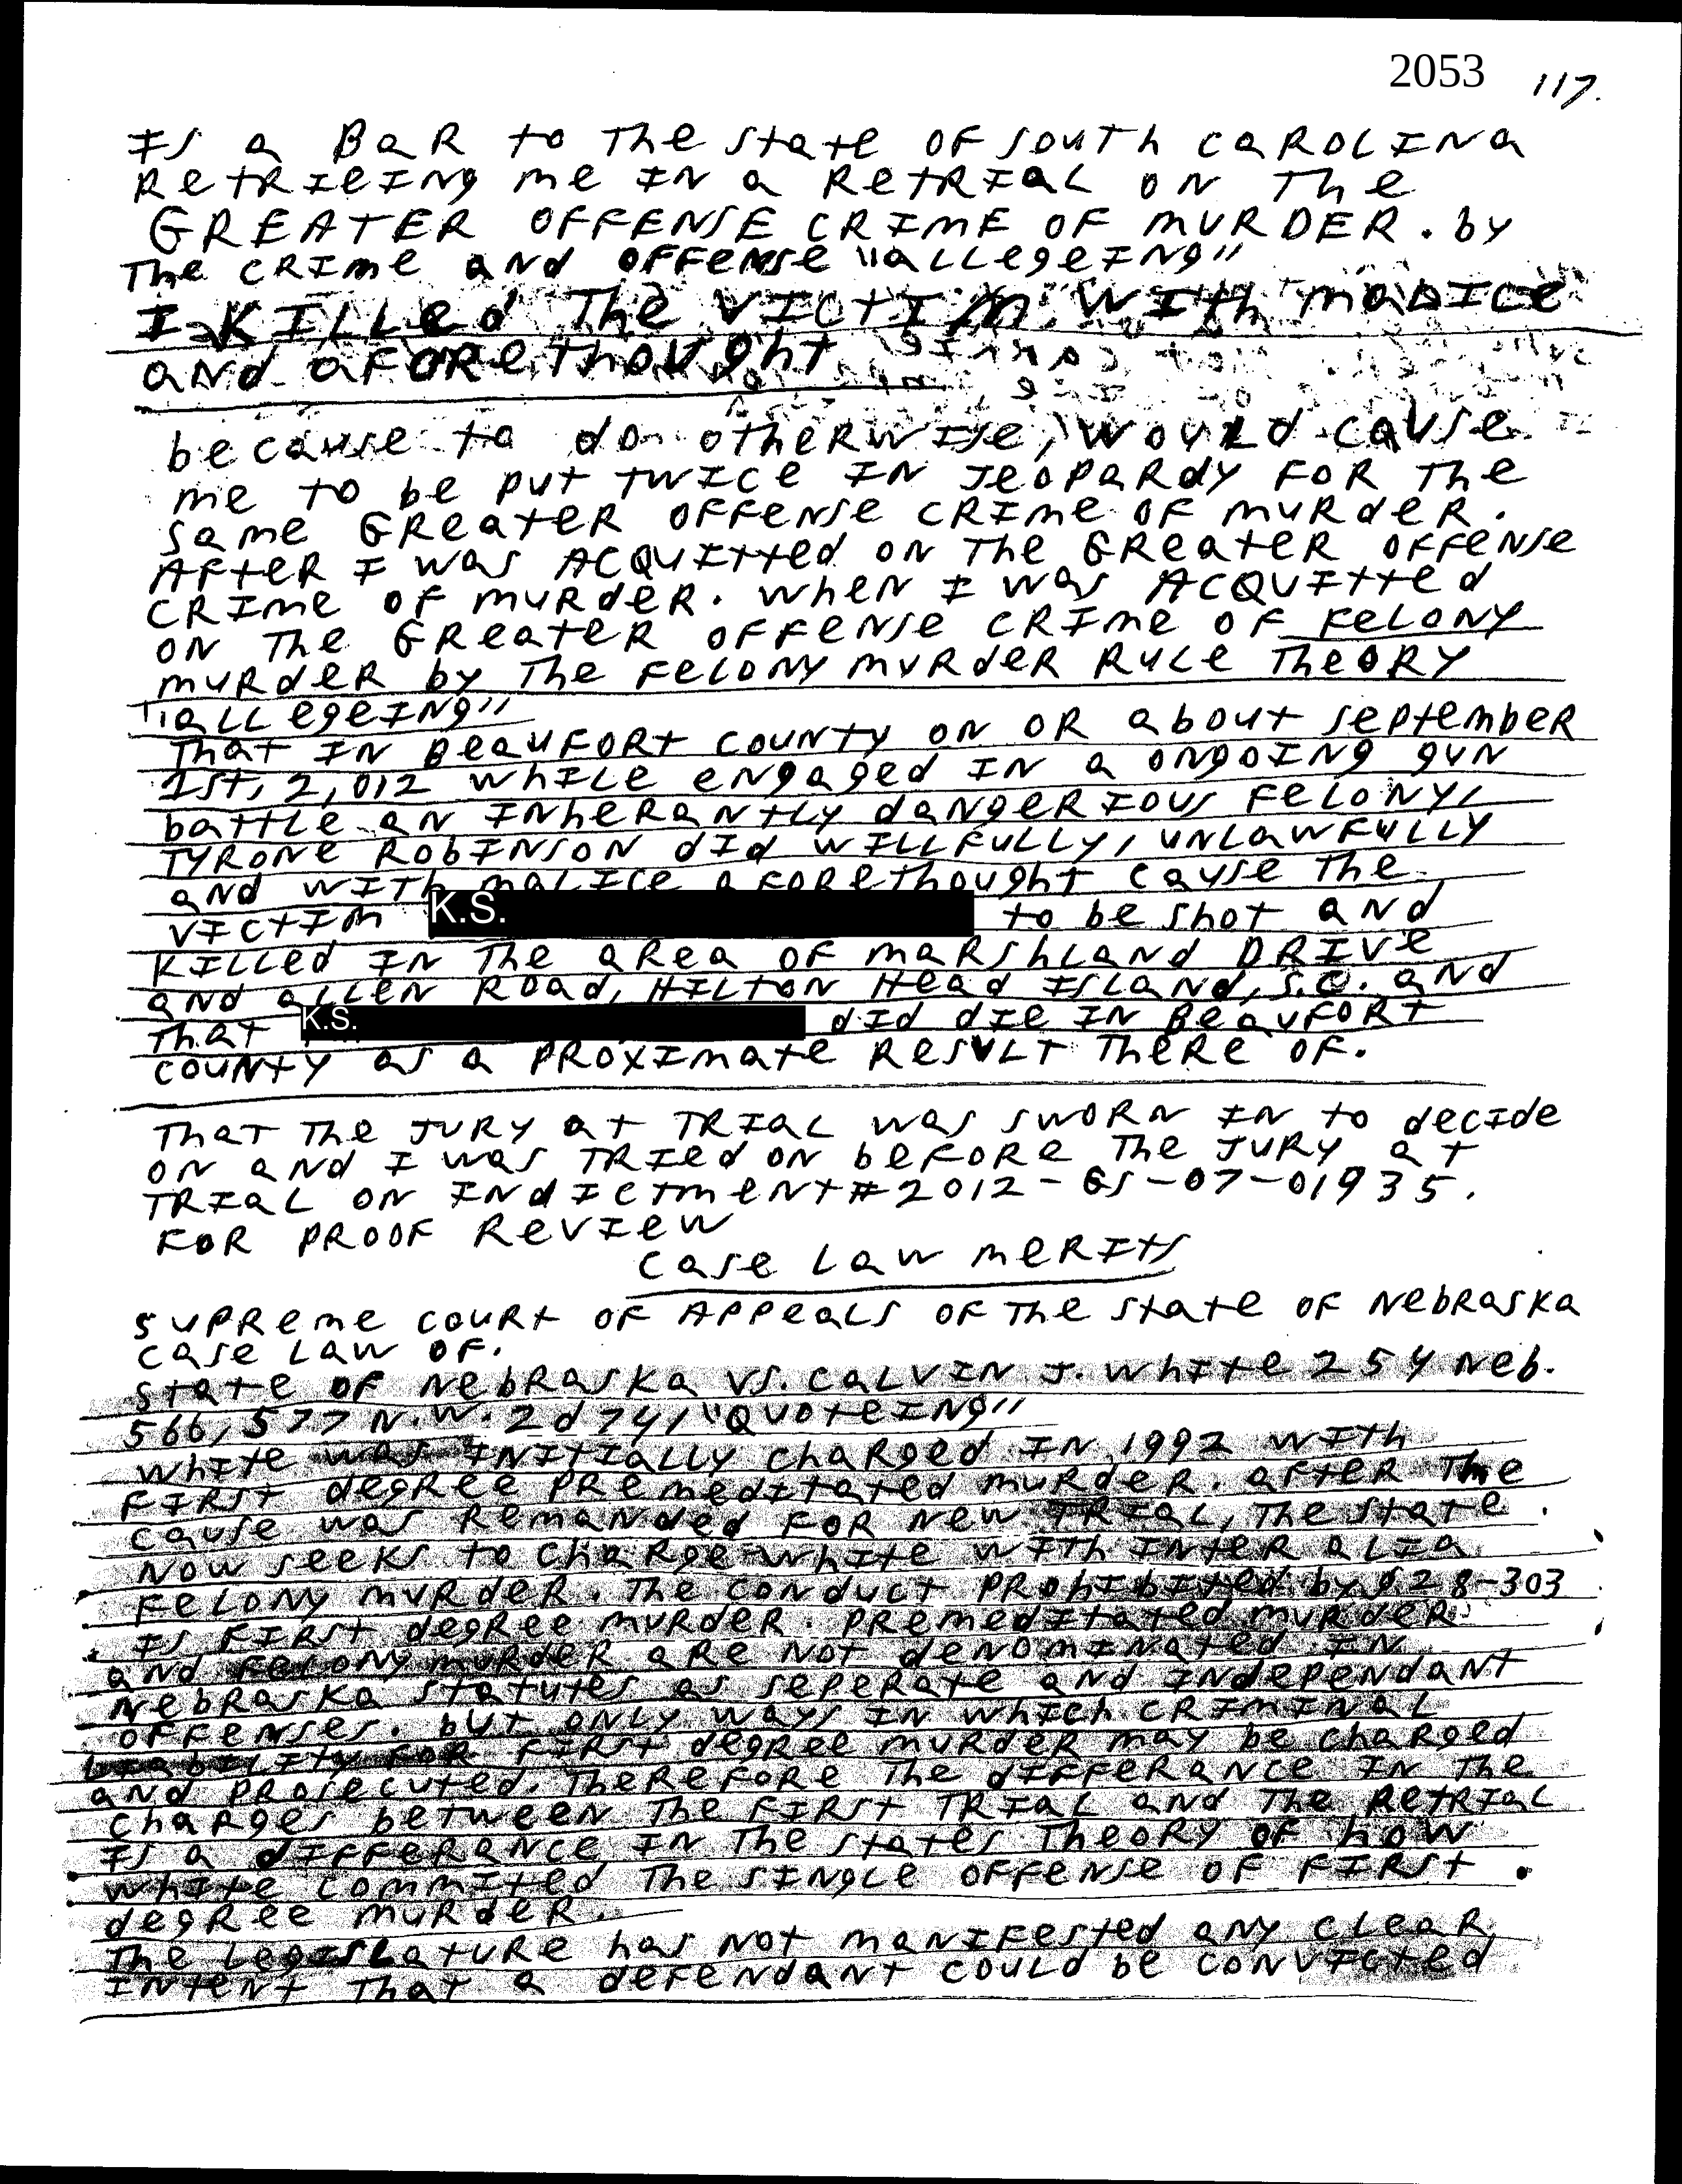 2053 117.
IS a BAR to The state OF SOUTH CAROLINA
RetRIEING me IN a RetRIAL ON The
GREATER OFFENSE CRIME OF MURDER. by
The CRIme and OFFENSE "aLLegeING"
I KILLed The VICTIM WITH maLICE
and aFORethought
because to do otherwise, would cause
me to be put TWICE IN JEOPARDY FOR The
same GREateR OFFENSE CRIme OF MURDER.
AFTER I was ACQUITTED ON The GREATER OFFENSE
CRIme OF MURDER. When I was ACQUITTED
ON The GREATER OFFENSE CRIme OF FELONY
MURDER by The FELONY MURDER RULE TheORY
"aLLegeING"
That IN BEAUFORT COUNTY ON OR about september
1st, 2,012 WHILE engaged IN a ONGOING gun
battle an INheRANTLY dangeRIOUS FELONY,
TYRONE ROBINSON dId WILLFULLY, UNLAWFULLY
and WITH maLICE aFORethought cause the
VICTIM K.S. to be shot and
KILLed IN The aRea OF MARSHLAND DRIVe
and aLLEN ROad, HILTON Head ISLAND, S.C. and
That K.S. dId dIe IN BEAUFORT
COUNTY as a PROXIMate RESULT TheRe OF.
That The JURY at TRIAL was SWORN IN to decIde
ON and I was TRIed ON beFORe The JURY at
TRIAL ON INdIctment#2012-GS-07-01935.
FOR PROOF REVIEW
Case Law MeRIts
supReme COURt OF APPeaLS OF The state OF NebRASKa
case Law OF.
state OF NebRASKa VS. CALVIN J. WhIte 254 Neb.
566, 577 N.W. 2d 741 "QUOteING"
WhIte was INITIALLY ChaRged IN 1992 WITh
FIRSt degRee PRemedItated MURDER. aFteR The
cause was Remanded FOR New TRIAL, The state
NOW seeks to ChaRge WhIte WITh INteR aLIa
FELONY MURDER. The Conduct PROhIbIted by §28-303
IS FIRSt degRee MURDER. PRemedItated MURDER
and FELONY MURDER aRe Not denomINated IN
NebRASKa statutes as sepeRate and INdependant
OFFENSES. but ONLY ways IN whIch CRIMINAL
LIabILIty FOR FIRSt degRee MURDER may be chaRged
and PROsecuted. TheReFORe The dIFFeRance IN The
ChaRges between The FIRSt TRIAL and The RetRIAL
IS a dIFFeRance IN The states TheORY OF how
WhIte CommIted The SINgLe OFFENSE OF FIRSt
degRee MURDER.
The LegIsLatuRe has Not manIFested any cLeaR
INtent That a deFendant couLd be convIcted